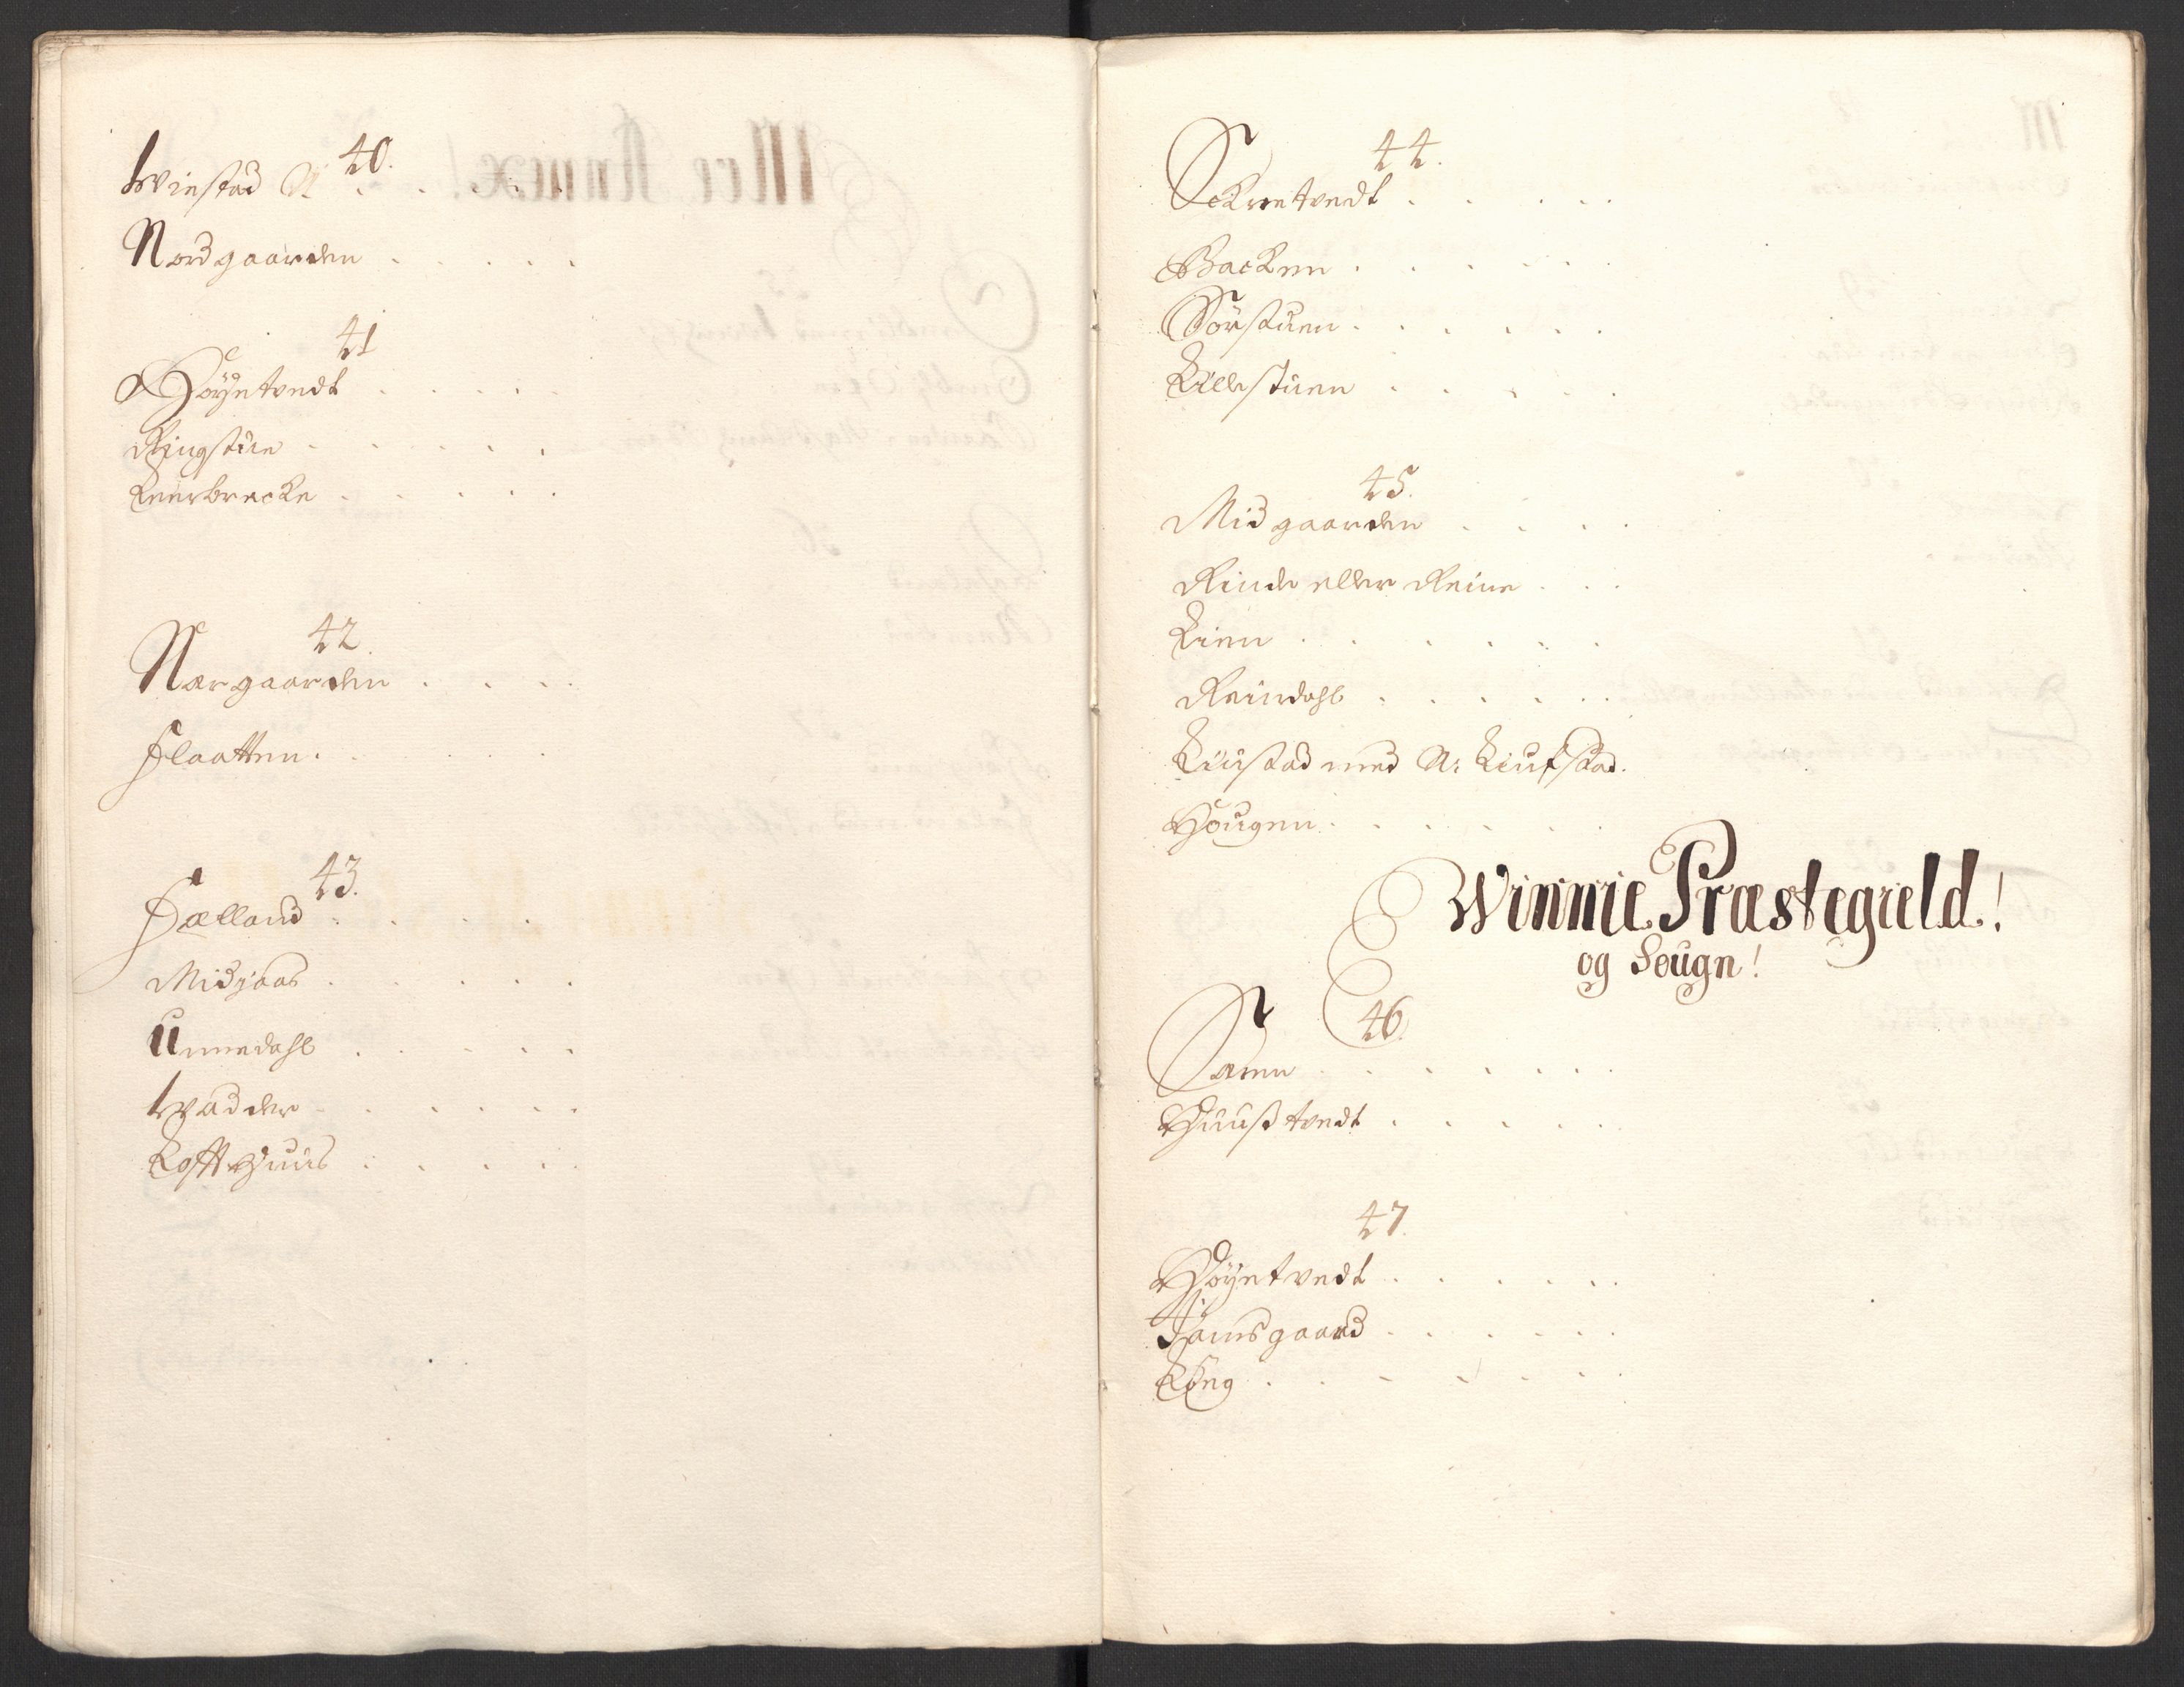 40.
Winstad N
Nordgaarden
41
Høyetvedt
Ringstue
Leerbrecke
42.
Nærgaarden
Flaatten
43.
Hælland
Midjaas
Unnedahl
Wadder
Loffthuus
44.
Sckreetvedt
Backen
Sörstuen
Lillestuen
45.
Midgaarden
Rinde eller Reine
Lien
Reindahl
Liustad med N: Liufstad.
Hougen
Winnie Præstegield!
og Sougn!
46.
Særen
Huußtvedt
47.
Høyetvedt
Jamsgaard
Lÿng